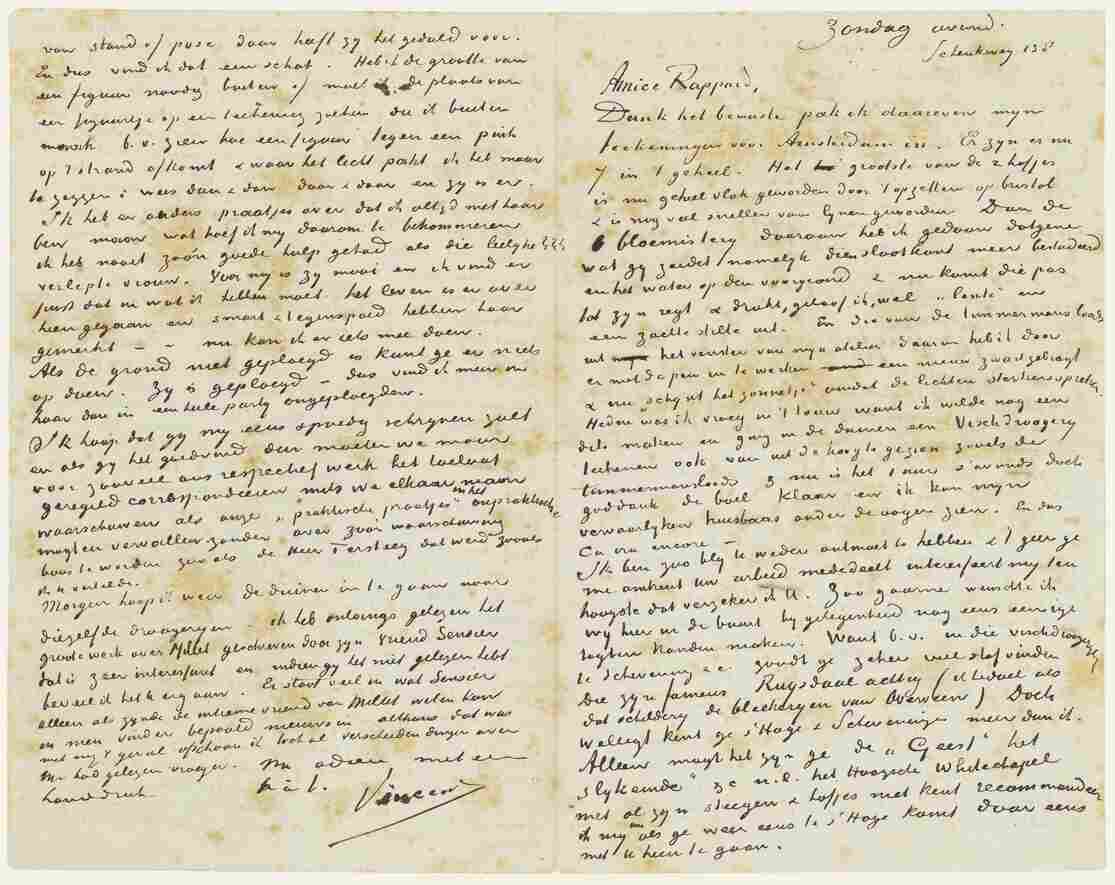 van stand of pose daar heeft zy het geduld voor.
En dus vind ik dat een schat. Heb ik de grootte van
een figuur noodig buiten of moet ik de plaats van
een figuurtje op een teekening zoeken die ik buiten
maak b.v. zien hoe een figuur tegen een pink
op 't strand afkomt & waar het licht pakt ik het maar
te zeggen: wees dan & dan daar & daar en zy is er.
Ik heb er anders praatjes over dat ik altyd met haar
ben maar wat hoef ik my daarom te bekommeren
ik heb nooit zoo'n goede hulp gehad als die leelyke
verlepte vrouw. Voor my is zy mooi en ik vind er
juist dat in wat ik hebben moet. het leven is er over
heen gegaan en smart & tegenspoed hebben haar
gemerkt – – nu kan ik er iets mee doen.
Als de grond niet geploegd is kunt ge er niets
op doen. Zy is geploegd – dus vind ik meer in
haar dan in een heele party ongeploegden.
Ik hoop dat gy my eens spoedig schryven zult
en als gy het goedvind dan moeten we maar
voor zooveel ons respectief werk het toelaat
geregeld correspondeeren mits we elkaar maar
waarschuwen als onze „praktische praatjes" in het onpraktische
mogten vervallen zonder over zoo'n waarschuwing
boos te worden zooals de Heer Tersteeg dat werd zooals
ik u vertelde.
Morgen hoop ik weer de duinen in te gaan naar
diezelfde droogeryen – ik heb onlangs gelezen het
groote werk over Millet geschreven door zyn vriend Sensier
dat is zeer interessant en indien gy het niet gelezen hebt
beveel ik het U erg aan. Er staat veel in wat Sensier
alleen als zynde de intieme vriend van Millet weten kon
en men vinder bepaald nieuws in althans dat was
met my 't geval ofschoon ik toch al verscheiden dingen over
M. had gelezen vroeger. Nu adieu met een
handdruk t. à t. Vincent
Zondag avond.
Schenkweg 138
Amice Rappard,
Dank het bewuste pak ik daareven myn
teekeningen voor Amsterdam in. Er zyn er nu
7 in 't geheel. Het grootste van de 2 hofjes
is nu geheel vlak geworden door 't opzetten op bristol
& is nog veel sneller van lynen geworden. Dan de
bloemistery daaraan heb ik gedaan datgene
wat gy zeidet namelyk dien slootkant meer bestudeerd
en het water op den voorgrond & nu komt die pas
tot zyn regt & drukt, geloof ik, wel „lente" en
een zachte stilte uit. En die van de timmermansloods
uit het venster van myn atelier daarin heb ik door
er met de pen in te werken een nieuw zwart gebragt
& nu „schynt het zonnetje" omdat de lichten sterker spreken.
Heden was ik vroeg in 't touw want ik wilde nog een
dito maken en ging in de duinen een Vischdroogery
teekenen ook van uit de hoogte gezien zooals de
timmermansloods & nu is het 1 uur s'avonds doch
goddank de boel klaar en ik kan myn
vervaarlyken huisbaas onder de oogen zien. En dus
Ca ira encore –
Ik ben zoo bly U weder ontmoet te hebben & 't geen ge
me omtrent uw arbeid mededeelt interesseert my ten
hoogste dat verzeker ik U. Zoo gaarne wenschte ik
wy hier in de buurt by gelegenheid nog eens eenige
togten konden maken. Want b.v. in die vischdroogeryen
te Schevening &c. zoudt ge zeker veel stof vinden
Die zyn fameus Ruysdaal achtig (ik bedoel als
dat schildery de bleekeryen van Overveen) Doch
welligt kent ge s'Hage & Scheveningen meer dan ik.
Alleen mogt het zyn ge de „Geest" het
„slykeinde" &c n.l. het Haagsche Whitechapel
met al zyn steegen & hofjes niet kent recommandeer
ik my als ge weer eens te s'Hage komt daar eens
met U heen te gaan.